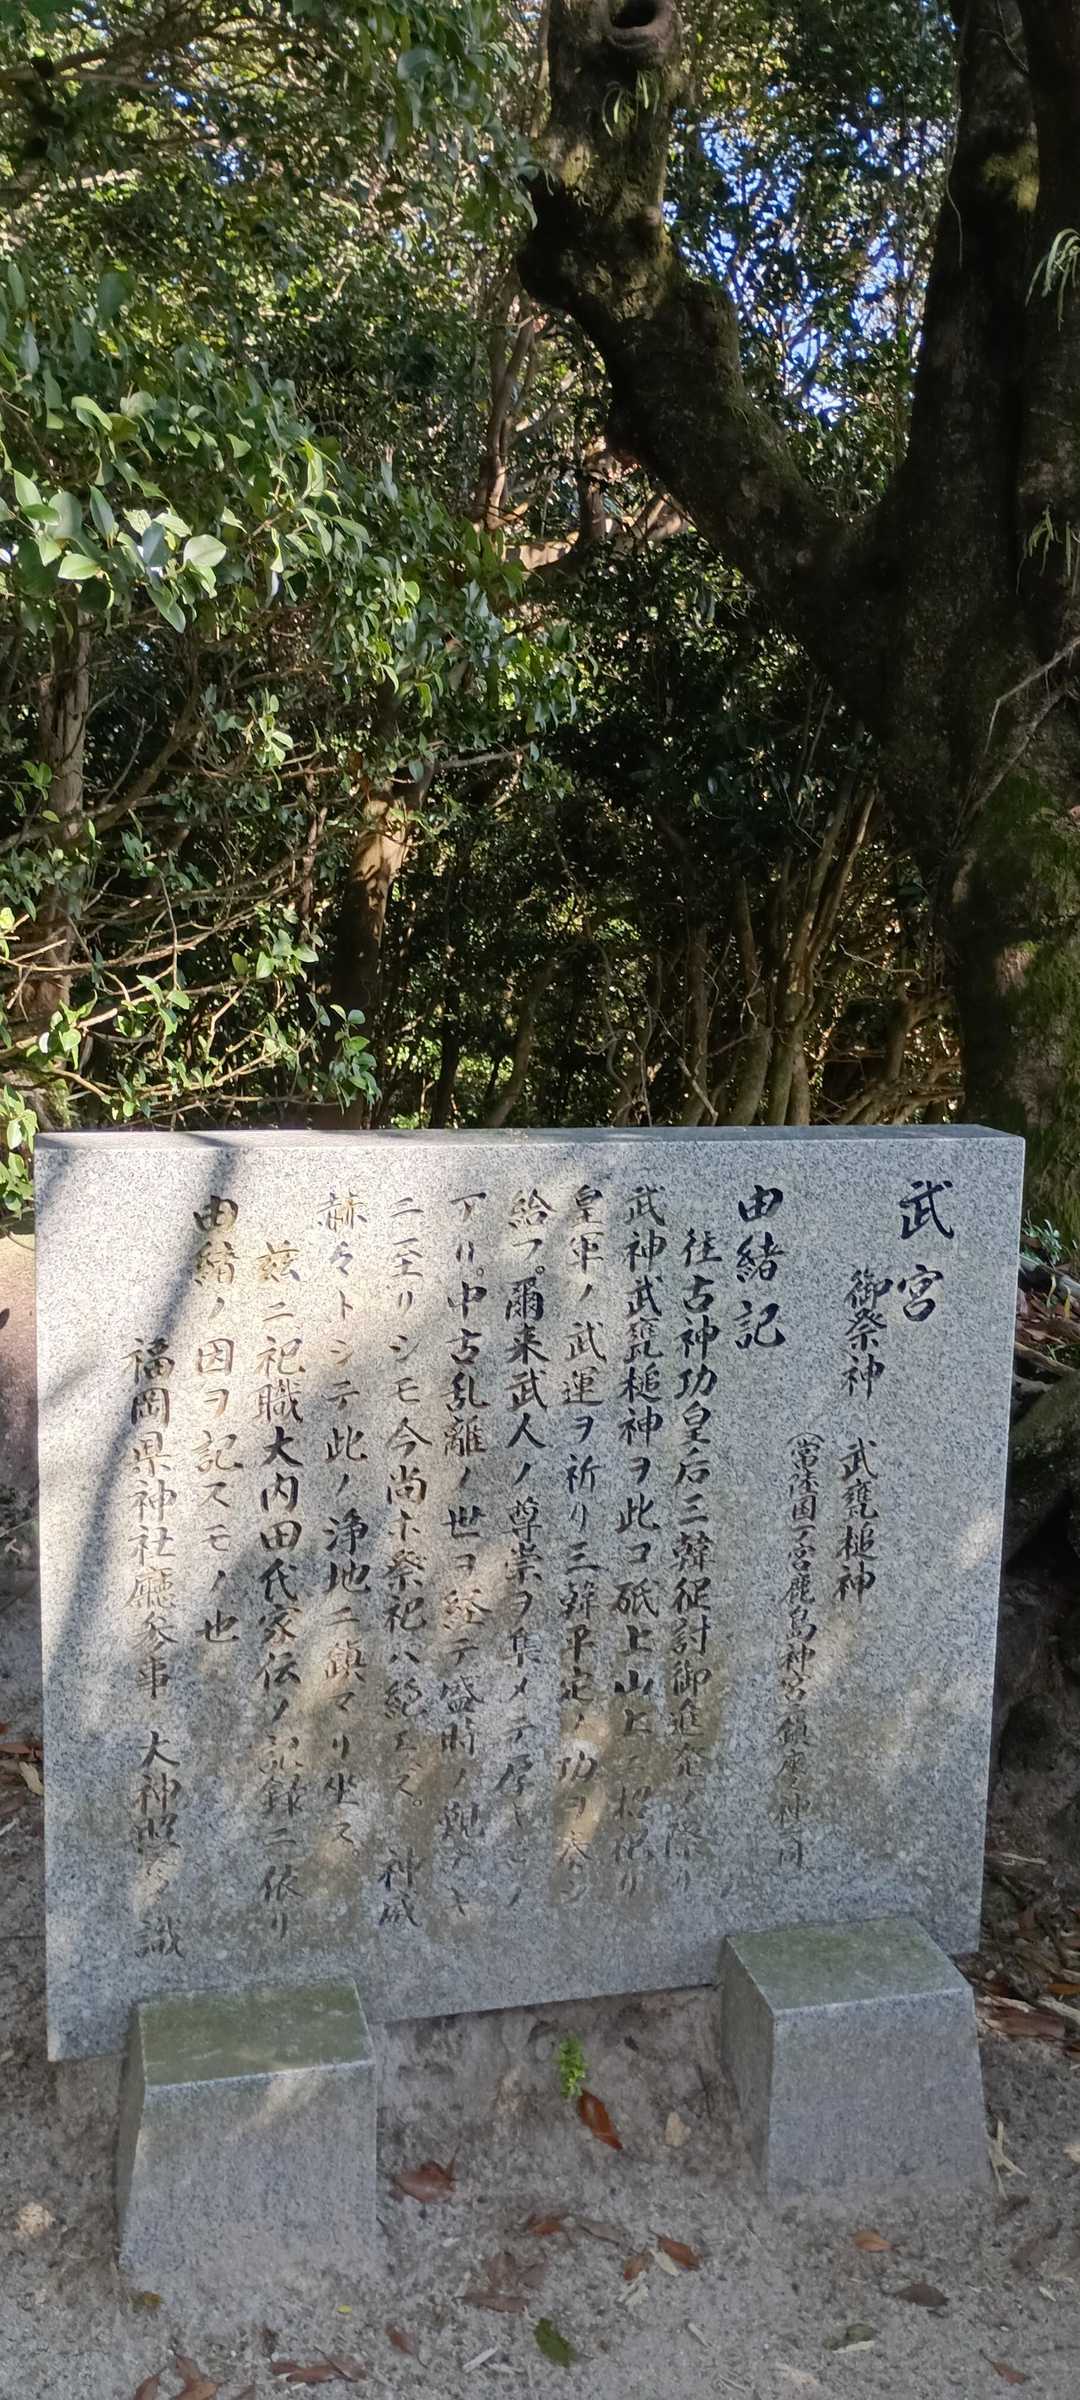 武宮
御祭神 武甕槌神
(常陸国一ノ宮鹿島神宮鎮座ノ神同
由緒記
往古神功皇后三韓征討御進発ノ際リ
武神武甕槌神ヲ此コ砥上山上ニ招祀リ
皇軍ノ武運ヲ祈リ三韓平定ノ功ヲ奏シ
給フ。爾来武人ノ尊崇ヲ集メテ厚キモノ
アリ。中古乱離ノ世ヲ経テ盛時ノ観ナキ
ニ至リシモ今尚ホ祭祀ハ絶エズ。神威
赫々トシテ此ノ浄地ニ鎮マリ坐ス。
茲ニ祀職大内田代家伝ノ記録ニ依リ
由緒ノ因ヲ記スモノ也
福岡県神社廳参事 大神 識